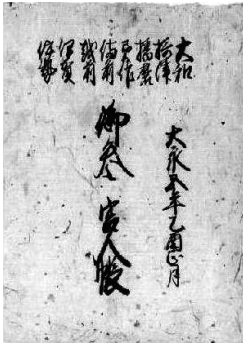 大和
摂津
播磨
美作
備前
越前
伊賀
大永五年乙酉正月
御参宮人帳